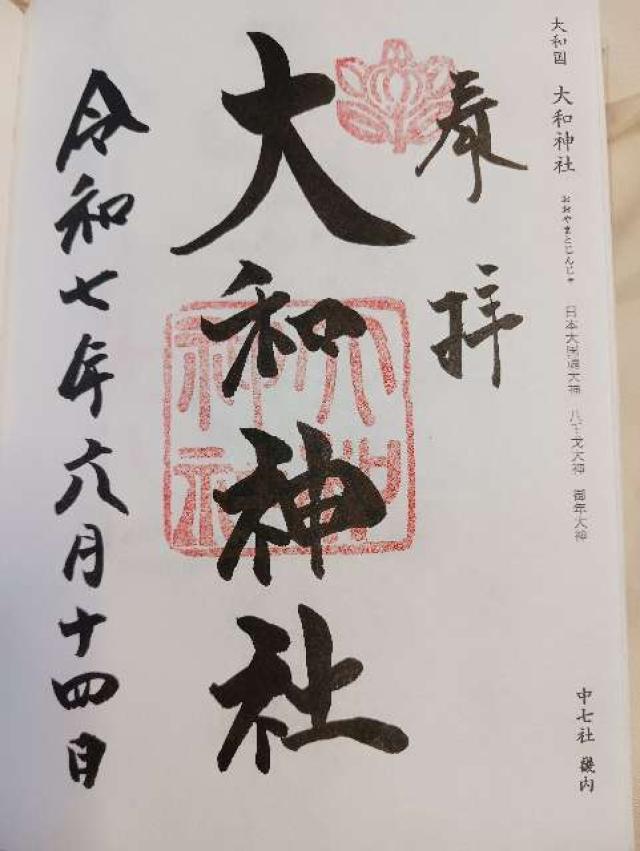 大和国 大和神社 おおやまとじんじゃ 日本大国魂大神 八千戈大神 御年大神
中七社 畿内
奉拝
大和神社
大和神社
令和七年六月十四日